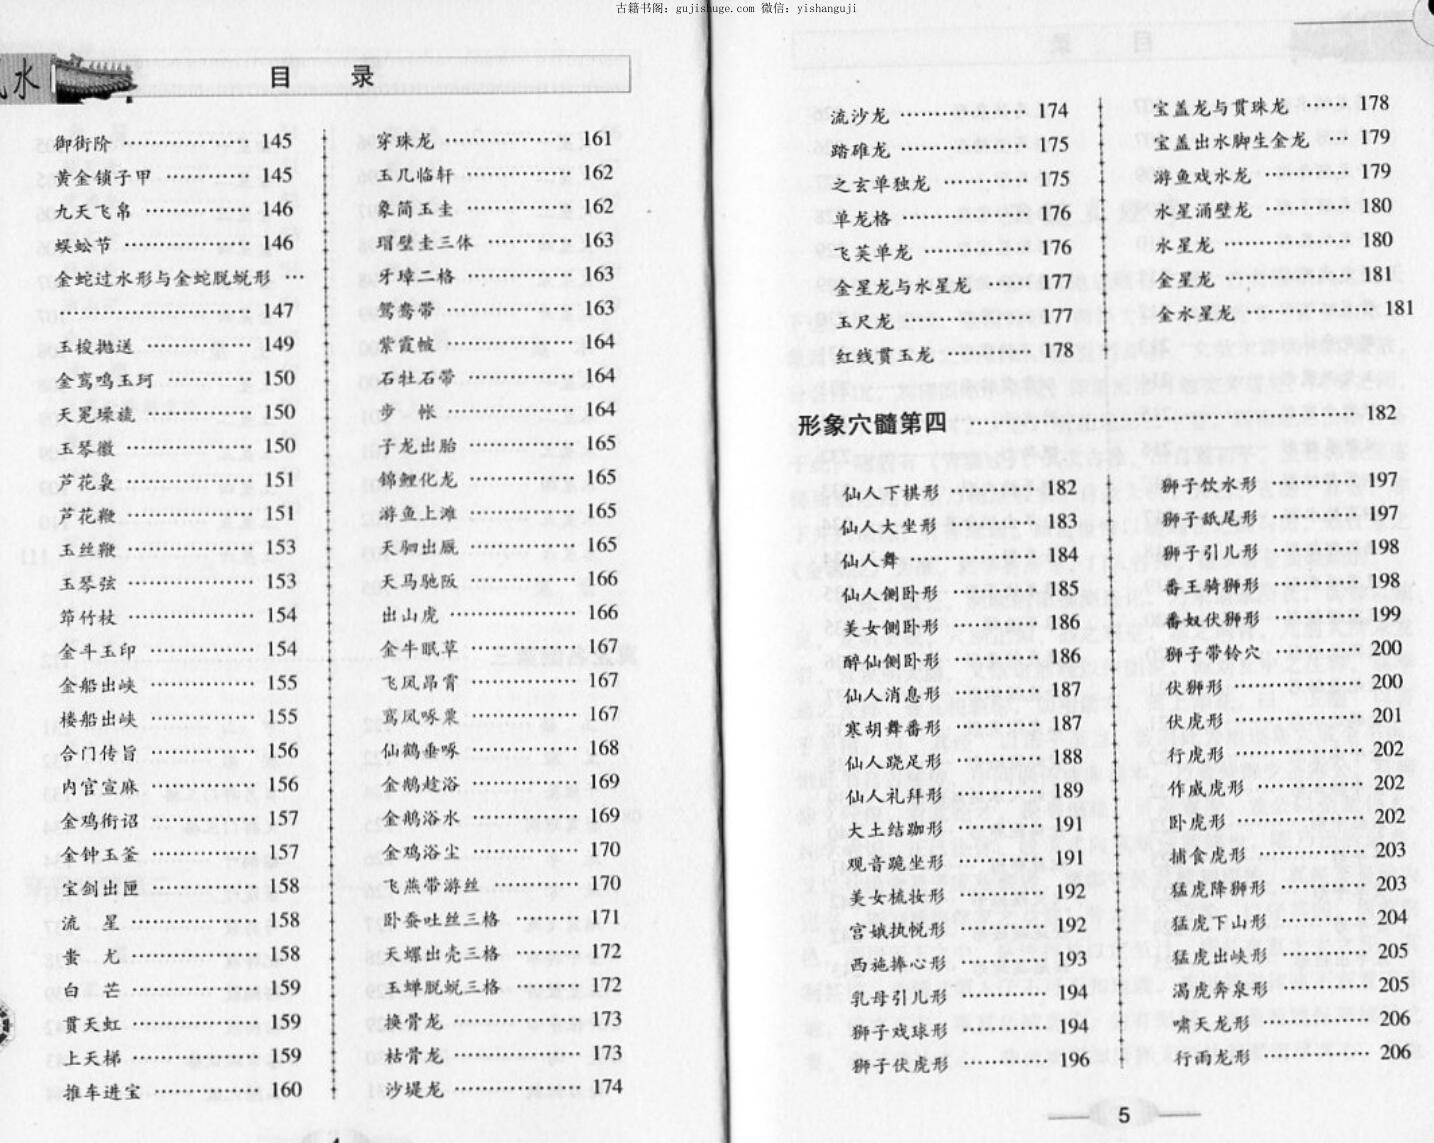 古籍书阁：gujishuge.com 微信：yishanguji
水
目 录
御街阶 …………… 145
黄金锁子甲 ………… 145
九天飞帛 …………… 146
蜈蚣节 …………… 146
金蛇过水形与金蛇脱蜕形 …
…………………… 147
玉梭抛送 …………… 149
金鸾鸣玉珂 ………… 150
天冕璪旒 …………… 150
玉琴徽 …………… 150
芦花袅 …………… 151
芦花鞭 …………… 151
玉丝鞭 …………… 153
玉琴弦 …………… 153
筇竹杖 …………… 154
金斗玉印 …………… 154
金船出峡 …………… 155
楼船出峡 …………… 155
合门传旨 …………… 156
内官宣麻 …………… 156
金鸡衔诏 …………… 157
金钟玉釜 …………… 157
宝剑出匣 …………… 158
流 星 …………… 158
蚩 尤 …………… 158
白 芒 …………… 159
贯天虹 …………… 159
上天梯 …………… 159
推车进宝 …………… 160
穿珠龙 …………… 161
玉几临轩 …………… 162
象简玉圭 …………… 162
瑁璧圭三体 ………… 163
牙璋二格 …………… 163
鸳鸯带 …………… 163
紫霞帔 …………… 164
石牡石带 …………… 164
步 帐 …………… 164
子龙出胎 …………… 165
锦鲤化龙 …………… 165
游鱼上滩 …………… 165
天驷出厩 …………… 165
天马驰阪 …………… 166
出山虎 …………… 166
金牛眠草 …………… 167
飞凤昂霄 …………… 167
鸾凤啄粟 …………… 167
仙鹤垂啄 …………… 168
金鹅趁浴 …………… 169
金鹅浴水 …………… 169
金鸡浴尘 …………… 170
飞燕带游丝 ………… 170
卧蚕吐丝三格 ……… 171
天螺出壳三格 ……… 172
玉蝉脱蜕三格 ……… 172
换骨龙 …………… 173
枯骨龙 …………… 173
沙堤龙 …………… 174
流沙龙 …………… 174
踏碓龙 …………… 175
之玄单独龙 ………… 175
单龙格 …………… 176
飞芙单龙 …………… 176
金星龙与水星龙 …… 177
玉尺龙 …………… 177
红线贯玉龙 ………… 178
宝盖龙与贯珠龙 …… 178
宝盖出水脚生金龙 … 179
游鱼戏水龙 ………… 179
水星涌壁龙 ………… 180
水星龙 …………… 180
金星龙 …………… 181
金水星龙 …………… 181
形象穴髓第四 …………………… 182
仙人下棋形 ………… 182
仙人大坐形 ………… 183
仙人舞 …………… 184
仙人侧卧形 ………… 185
美女侧卧形 ………… 186
醉仙侧卧形 ………… 186
仙人消息形 ………… 187
寒胡舞番形 ………… 187
仙人跷足形 ………… 188
仙人礼拜形 ………… 189
大士结跏形 ………… 191
观音跪坐形 ………… 191
美女梳妆形 ………… 192
宫娥执帨形 ………… 192
西施捧心形 ………… 193
乳母引儿形 ………… 194
狮子戏球形 ………… 194
狮子伏虎形 ………… 196
狮子饮水形 ………… 197
狮子舐尾形 ………… 197
狮子引儿形 ………… 198
番王骑狮形 ………… 198
番奴伏狮形 ………… 199
狮子带铃穴 ………… 200
伏狮形 …………… 200
伏虎形 …………… 201
行虎形 …………… 202
作威虎形 …………… 202
卧虎形 …………… 202
捕食虎形 …………… 203
猛虎降狮形 ………… 203
猛虎下山形 ………… 204
猛虎出峡形 ………… 205
渴虎奔泉形 ………… 205
啸天龙形 …………… 206
行雨龙形 …………… 206
5